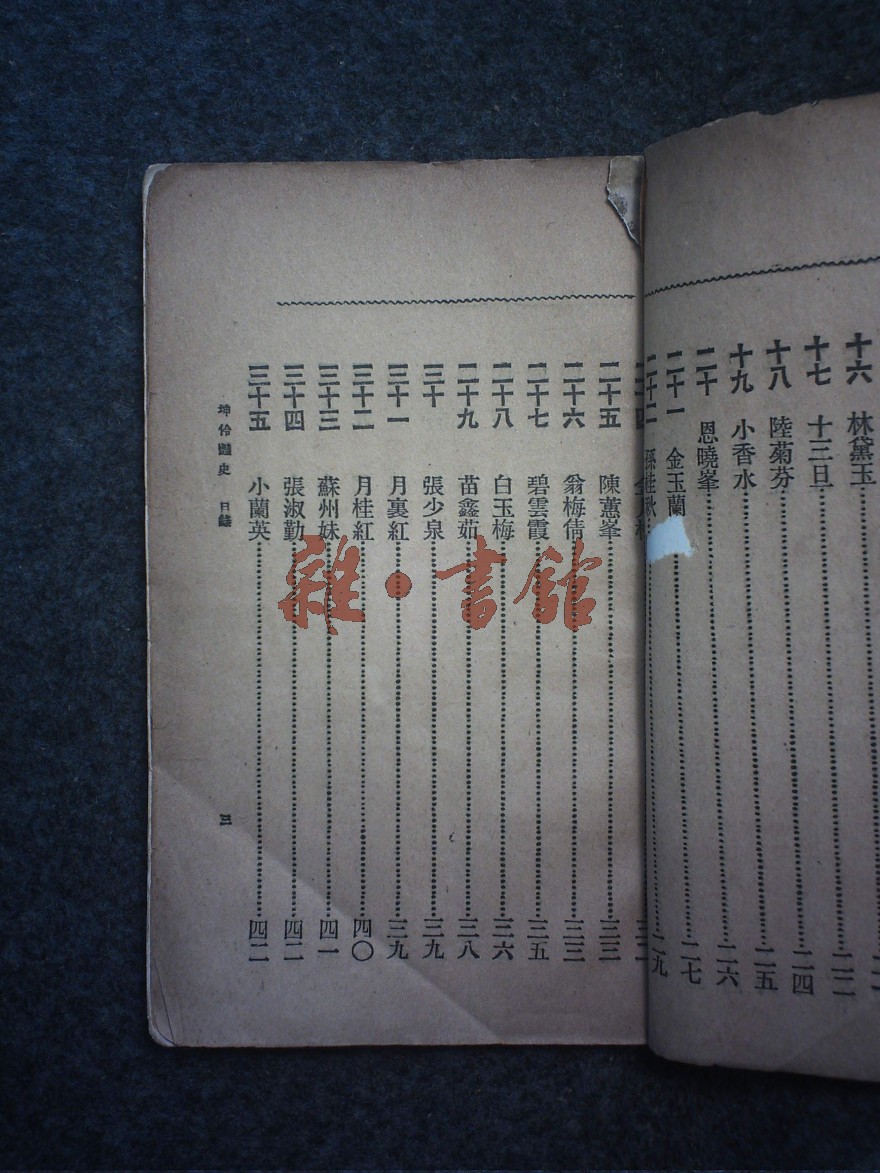 十六 林黛玉
十七 十三旦 二二
十八 陸菊芬 二四
十九 小香水 二五
二十 恩曉峯 二六
二十一 金玉蘭 二七
二十二 孫桂秋 二九
二十五 陳蕙峯 三三
二十六 翁梅倩 三三
二十七 碧雲霞 三五
二十八 白玉梅 三六
二十九 苗鑫茹 三八
三十 張少泉 三九
三十一 月裏紅 三九
三十二 月桂紅 四〇
三十三 蘇州妹 四一
三十四 張淑勤 四二
三十五 小蘭英 四二
坤伶豔史 目錄 三
雜·書館